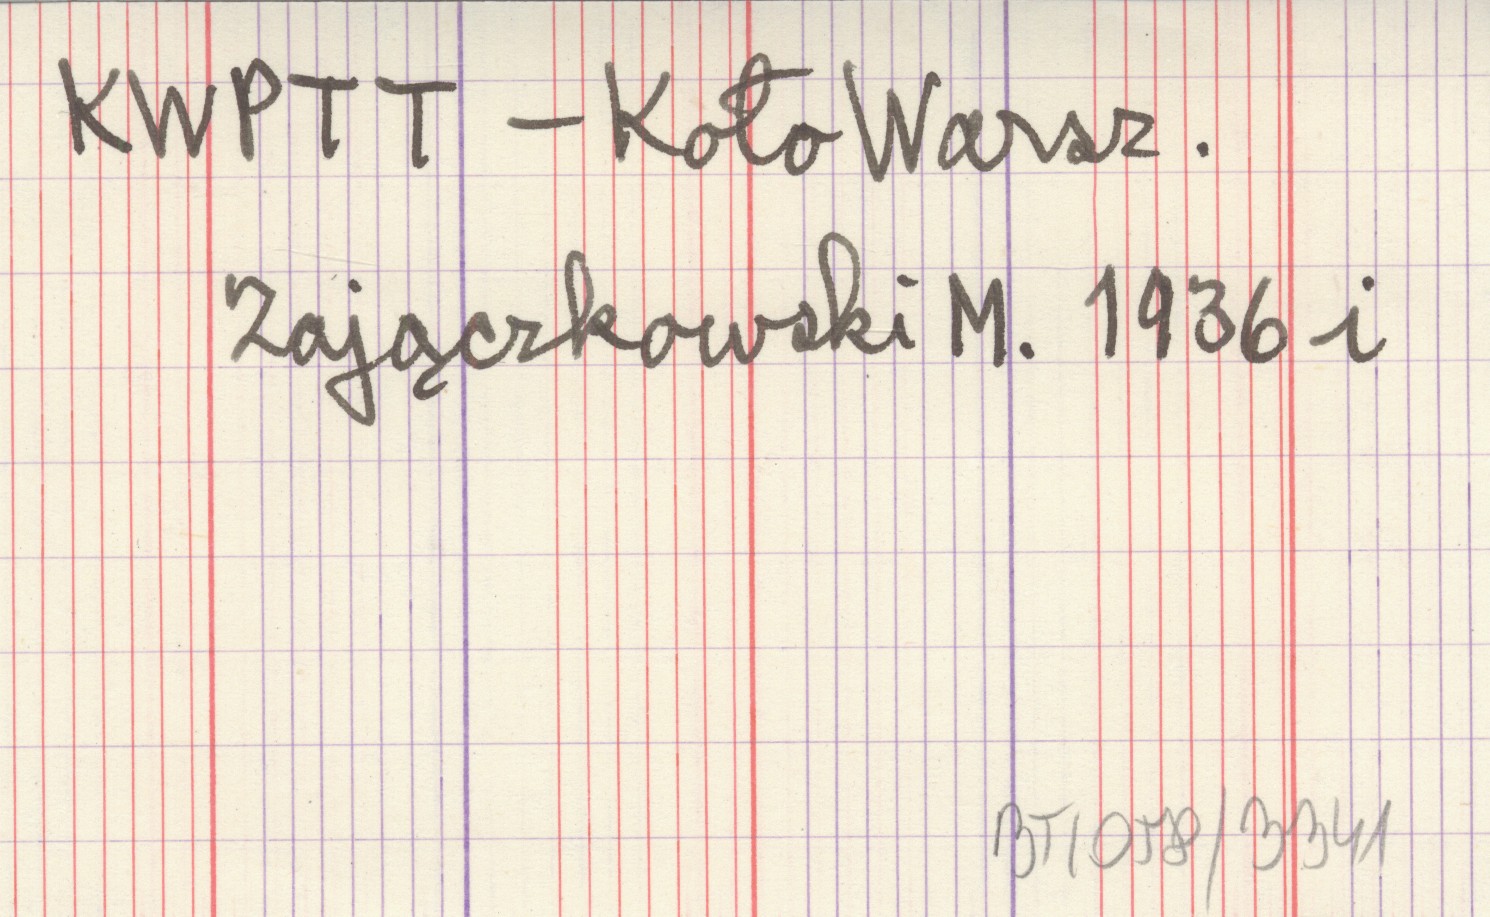 KWPTT – Koło Warsz.
Zajączkowski M. 1936 i
BT/058/3341